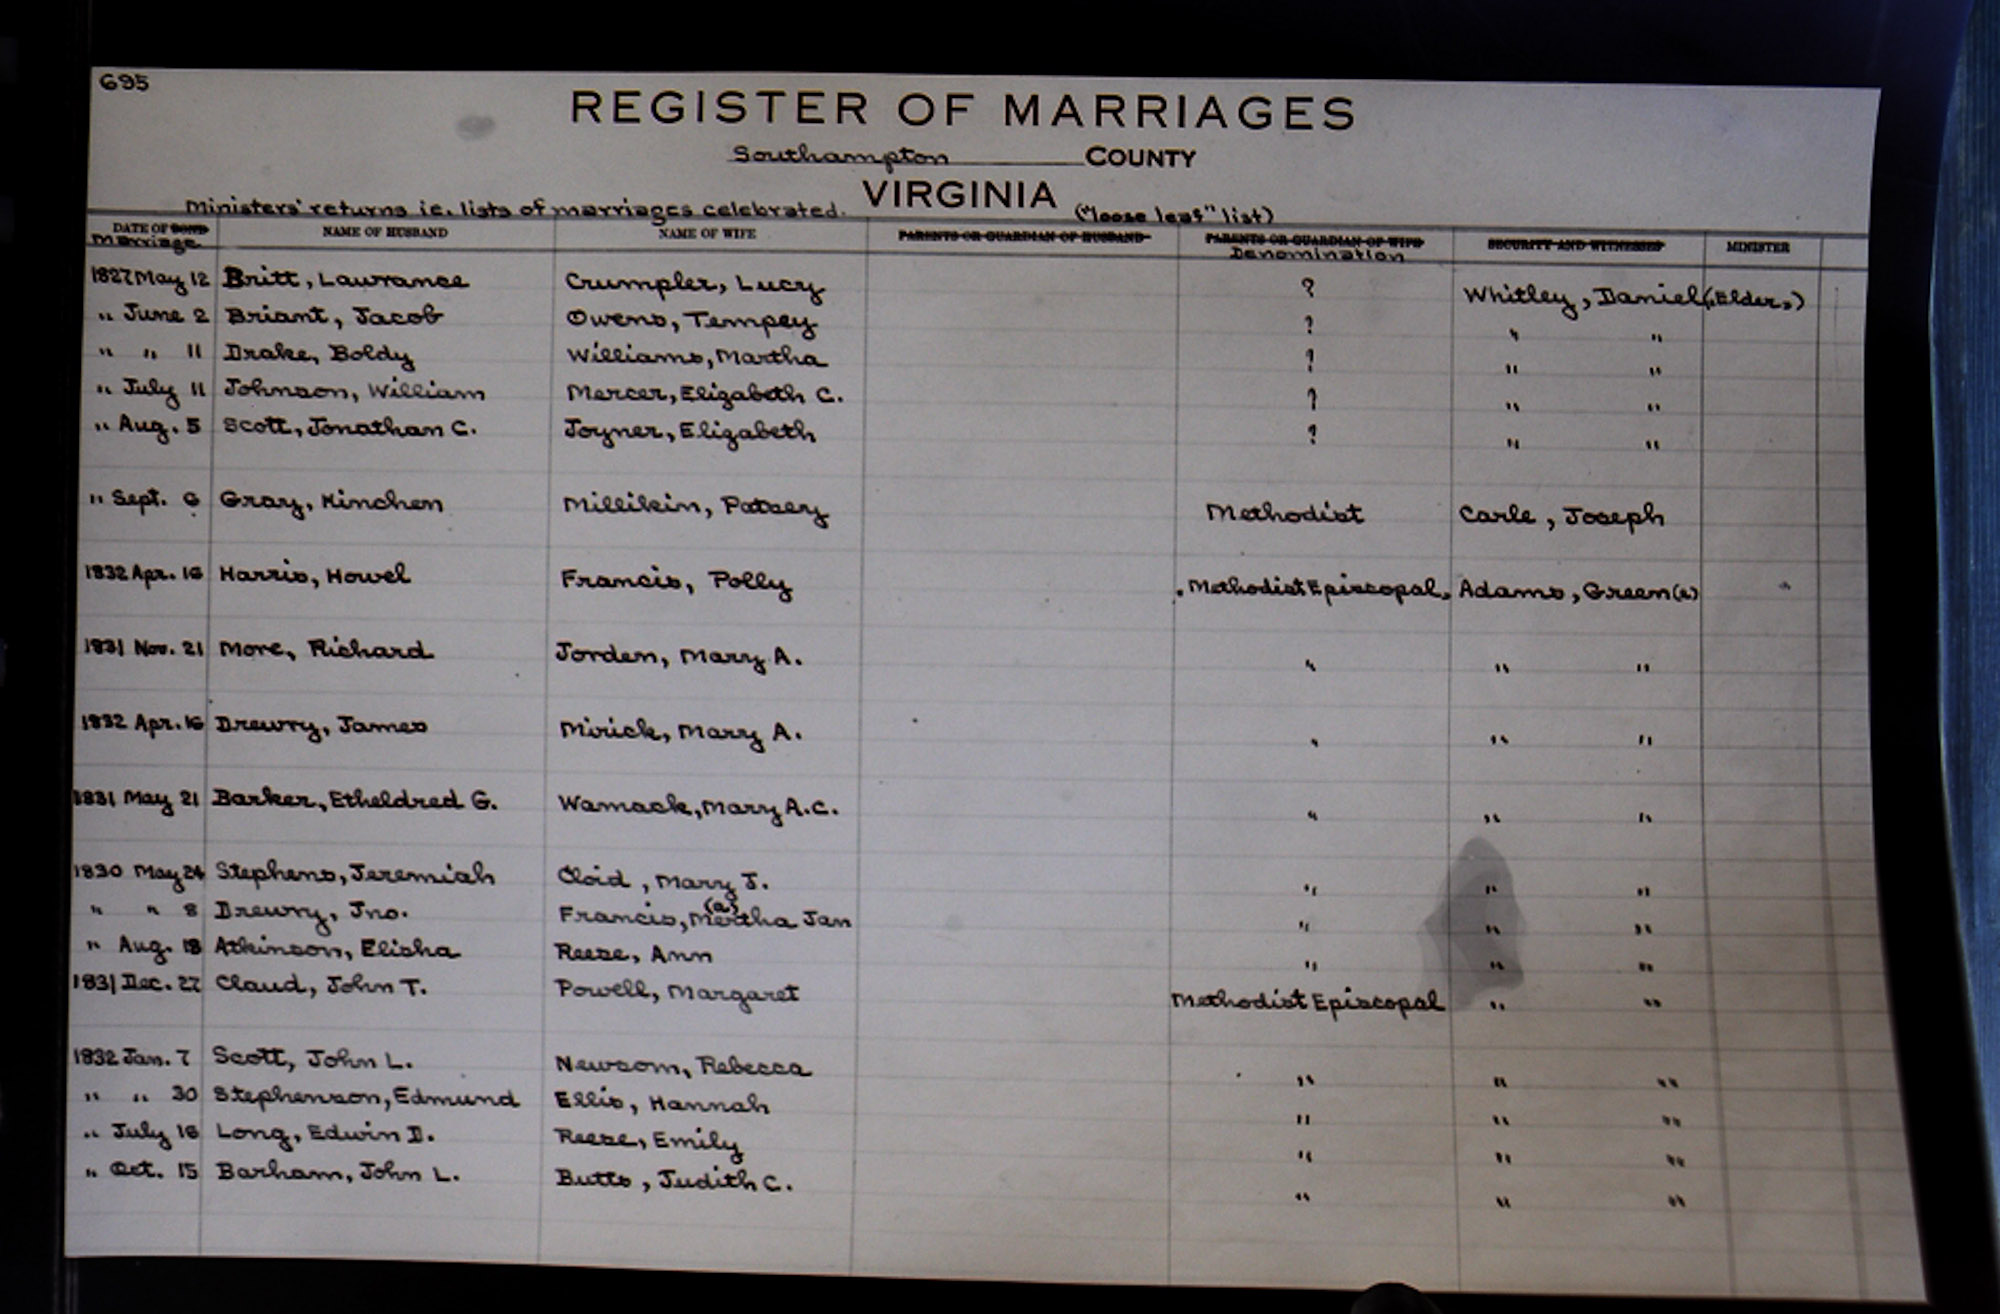 695
REGISTER OF MARRIAGES
Southampton COUNTY
VIRGINIA
Ministers' returns i.e. lists of marriages celebrated. ("loose leaf" list)
DATE OF BOND NAME OF HUSBAND NAME OF WIFE PARENTS OR GUARDIAN OF HUSBAND PARENTS OR GUARDIAN OF WIFE SECURITY AND WITNESSES MINISTER
Marriage Denomination
1827 May 12 Britt, Lawrance Crumpler, Lucy ? Whitley, Daniel (Elder.)
" June 2 Briant, Jacob Owens, Tempey ? " "
" " 11 Drake, Boldy Williams, Martha ? " "
" July 11 Johnson, William Mercer, Elizabeth C. ? " "
" Aug. 5 Scott, Jonathan C. Joyner, Elizabeth ? " "
" Sept. 6 Gray, Hinchen Millikin, Patsey Methodist Carle, Joseph
1832 Apr. 16 Harris, Howel Francis, Polly Methodist Episcopal Adams, Green(e)
1831 Nov. 21 More, Richard Jorden, Mary A. " " "
1832 Apr. 16 Drewry, James Mirick, Mary A. " " "
1831 May 21 Barker, Etheldred G. Wamack, Mary A.C. " " "
1830 May 24 Stephens, Jeremiah Cloid, Mary J. " " "
" " 8 Drewry, Jno. Francis, Me(a)rtha Jan " " "
" Aug. 18 Atkinson, Elisha Reese, Ann " " "
1831 Dec. 27 Claud, John T. Powell, Margaret Methodist Episcopal " "
1832 Jan. 7 Scott, John L. Newsom, Rebecca " " "
" " 30 Stephenson, Edmund Ellis, Hannah " " "
" July 18 Long, Edwin D. Reese, Emily " " "
" Oct. 15 Barham, John L. Butts, Judith C. " " "